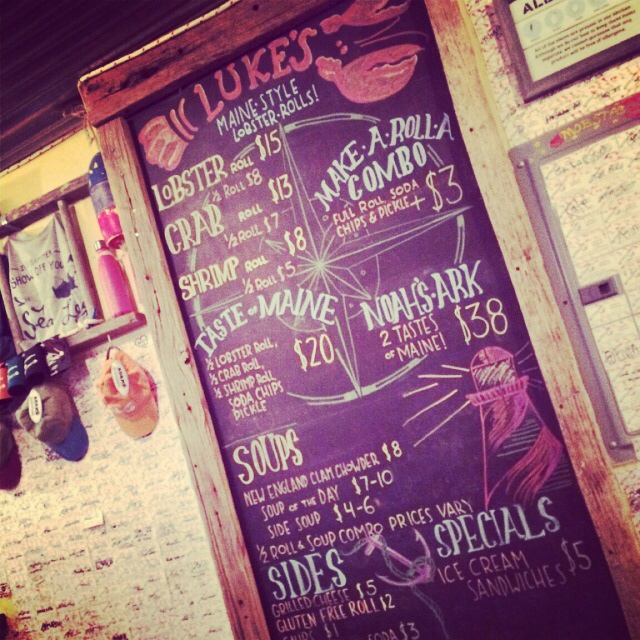 LUKE'S
MAINE STYLE
LOBSTER-ROLLS!
LOBSTER ROLL $15
½ ROLL $8
CRAB ROLL $13
½ ROLL $7
SHRIMP ROLL $8
½ ROLL $5
MAKE-A-ROLL A
COMBO
FULL ROLL, SODA
CHIPS & PICKLE + $3
TASTE OF MAINE
½ LOBSTER ROLL,
½ CRAB ROLL,
½ SHRIMP ROLL
SODA, CHIPS
PICKLE
$20
NOAH'S ARK
2 TASTES
OF MAINE!
$38
SOUPS
NEW ENGLAND CLAM CHOWDER $8
SOUP OF THE DAY $7-10
SIDE SOUP $4-6
½ ROLL & SOUP COMBO PRICES VARY
SIDES
GRILLED CHEESE $5
GLUTEN FREE ROLL 12
SODA $3
SPECIALS
ICE CREAM
SANDWICHES $5